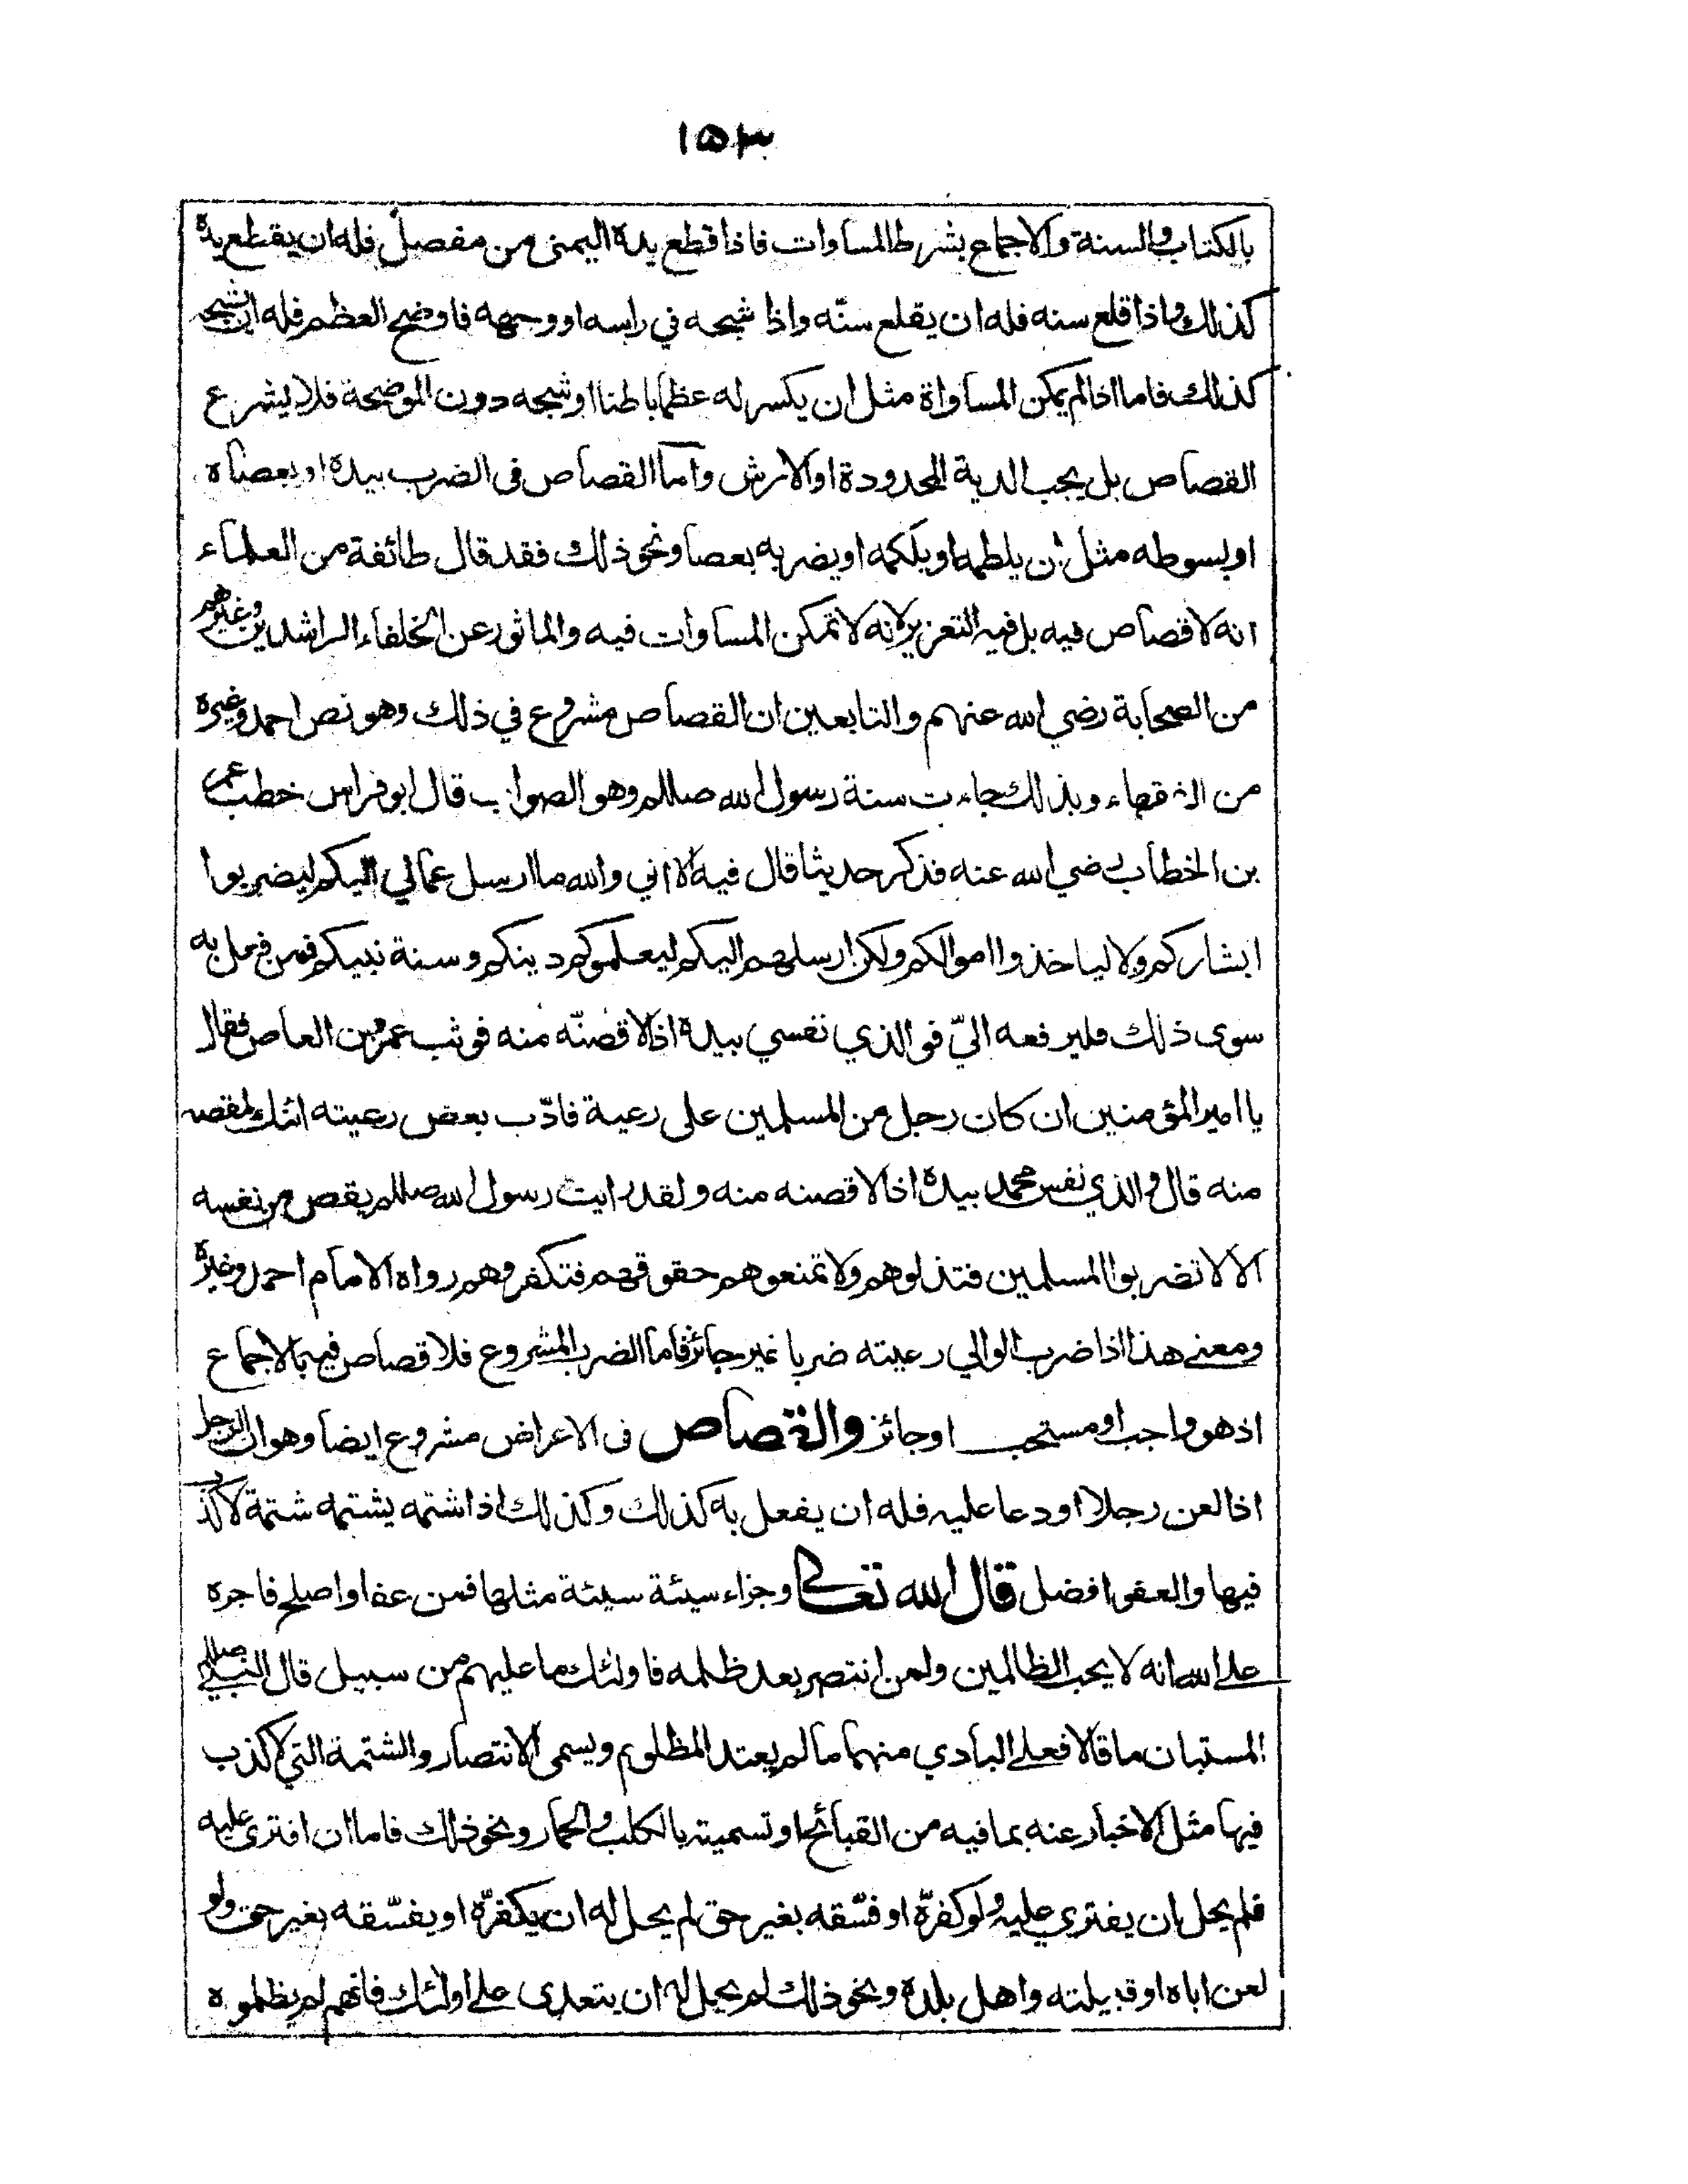 ۱۵۳
بالكتاب والسنة والاجماع بشرط المساوات فاذا قطع يده اليمنى من مفصل فله ان يقطع يده
كذلك واذا قلع سنه فله ان يقلع سنّه واذا شجه في راسه او وجهه فاوضح العظم فله ان يشجه
كذلك فاما اذا لم يمكن المساواة مثل ان يكسر له عظما باطنا او شجه دون الموضحة فلا يشرع
القصاص بل يجب الدية المحدودة او الارش واما القصاص فى الضرب بيده او بعصاه
او بسوطه مثل ان يلطمه او يلكمه او يضربه بعصا ونحو ذلك فقد قال طائفة من العلماء
انه لا قصاص فيه بل فيه التعزير لانه لا تمكن المساوات فيه والماثور عن الخلفاء الراشدين وغيرهم
من الصحابة رضي الله عنهم والتابعين ان القصاص مشروع في ذلك وهو نص احمد وغيره
من الفقهاء وبذلك جاءت سنة رسول الله صللم وهو الصواب قال ابو فراس خطب عمر
بن الخطاب رضي الله عنه فذكر حديثا قال فيه الا اني والله ما ارسل عمالي اليكم ليضربوا
ابشاركم ولا لياخذوا اموالكم ولكن ارسلهم اليكم ليعلموكم دينكم وسنة نبيكم فمن فعل به
سوى ذلك فليرفعه اليّ فو الذي نفسي بيده اذا لاقصنّه منه فوثب عمرو بن العاص فقال
يا امير المؤمنين ان كان رجل من المسلمين على رعية فادّب بعض رعيته ائنك لمقصه
منه قال والذي نفس محمد بيده اذا لاقصنه منه ولقد رايت رسول الله صللم يقص من نفسه
الا لا تضربوا المسلمين فتذلوهم ولا تمنعوهم حقوقهم فتكفروهم رواه الامام احمد وغيره
ومعنے هذا اذا ضرب الوالي رعيته ضربا غير جائز فاما الضرب المشروع فلا قصاص فيه بالاجماع
اذ هو واجب او مستحب او جائز والقصاص فى الاعراض مشروع ايضا وهو ان الرجل
اذا لعن رجلا او دعا عليه فله ان يفعل به كذلك وكذلك اذا شتمه يشتمه شتمة لا كذب
فيها والعفو افضل قال الله تعالى وجزاء سيئة سيئة مثلها فمن عفا واصلح فاجره
علے الله انه لا يحب الظالمين ولمن انتصر بعد ظلمه فاولئك ما عليهم من سبيل قال النبي صللم
المستبان ما قالا فعلے البادي منهما ما لم يعتد المظلوم ويسمى الانتصار والشتمة التي لا كذب
فيها مثل الاخبار عنه بما فيه من القبائح او تسميته بالكلب والحمار ونحو ذلك فاما ان افترى عليه
فلم يحل ان يفتري عليه ولو كفرّه او فسّقه بغير حق لم يحل له ان يكفرّه او يفسّقه بغير حق ولو
لعن اباه او قبيلته واهل بلده ونحو ذلك لم يحل له ان يتعدى علے اولئك فانهم لم يظلموه